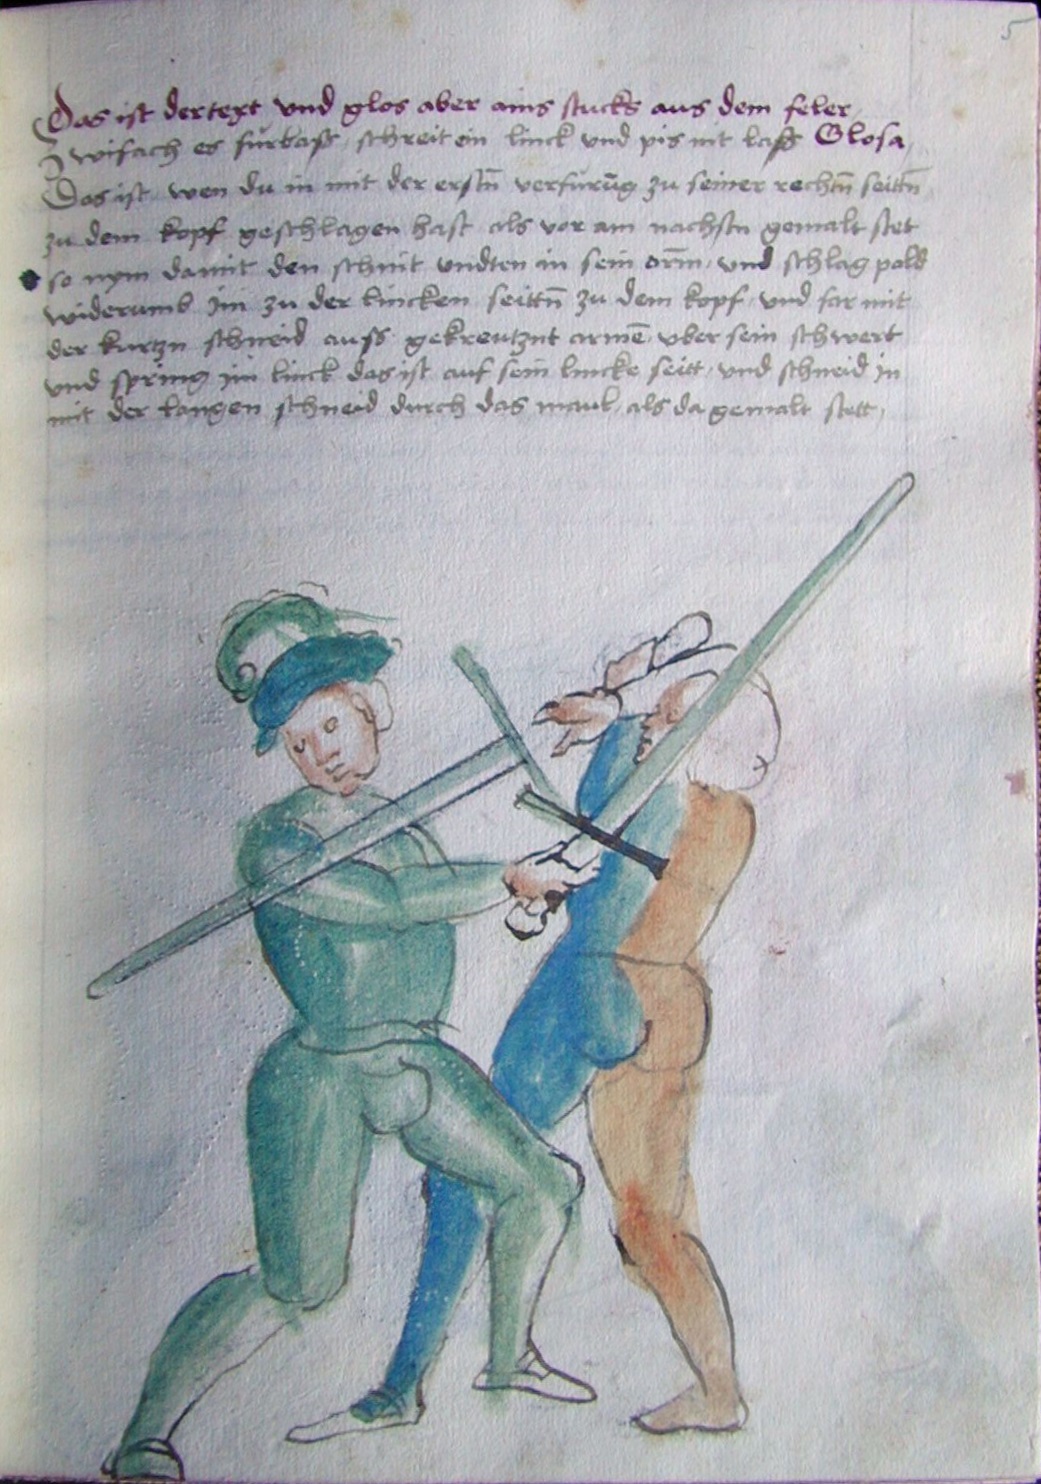 5
Das ist der text und glos aber ains stucks aus dem feler
Zwifach es fürbass, schreit ein linck und pis nit lass Glosa,
Das ist, wen du in mit der erstñ verfürũg zu seiner rechtñ seittñ
zu dem kopf geschlagen hast als vor am nachstn gemalt stet
so nym damit den schnit undten in sein arm, und schlag pald
widerumb Im zu der lincken seittñ zu dem kopf, und far mit
der kurtzn schneid auss gekreutznt armẽ uber sein schwert
und spring im linck das ist auf sein lincke seitt, und schneid in
mit der langen schneid durch das maul, als da gemalt stett,